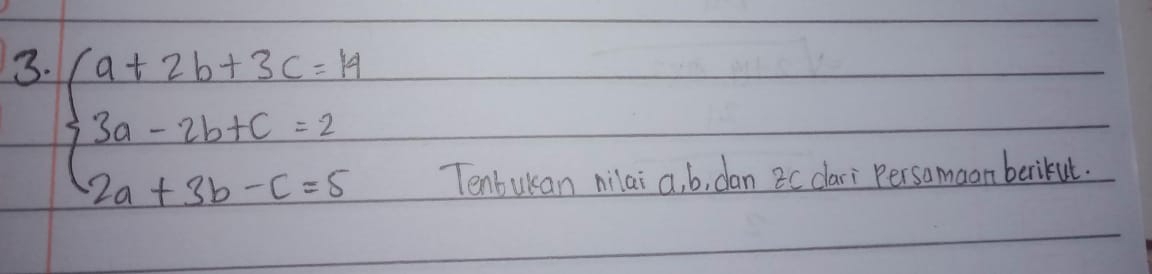 3. a + 2b + 3c = 14
3a - 2b + c = 2
2a + 3b - c = 5 Tentukan nilai a, b, dan 2c dari Persamaan berikut.